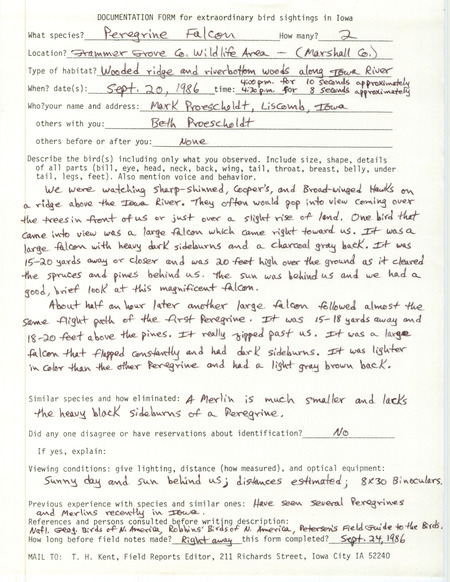 DOCUMENTATION FORM for extraordinary bird sightings in Iowa
What species? Peregrine Falcon How many? 2
Location? Grammer Grove Co. Wildlife Area - (Marshall Co.)
Type of habitat? Wooded ridge and riverbottom woods along Iowa River
4:00 p.m. for 10 seconds approximately
When? date(s): Sept. 20, 1986 time: 4:30 p.m. for 8 seconds approximately
Who?your name and address: Mark Proescholdt, Liscomb, Iowa
others with you: Beth Proescholdt
others before or after you: None
Describe the bird(s) including only what you observed. Include size, shape, details
of all parts (bill, eye, head, neck, back, wing, tail, throat, breast, belly, under
tail, legs, feet). Also mention voice and behavior.
We were watching Sharp-shinned, Cooper's, and Broad-winged Hawks on
a ridge above the Iowa River. They often would pop into view coming over
the trees in front of us or just over a slight rise of land. One bird that
came into view was a large falcon which came right toward us. It was a
large falcon with heavy dark sideburns and a charcoal gray back. It was
15-20 yards away or closer and was 20 feet high over the ground as it cleared
the spruces and pines behind us. The sun was behind us and we had a
good, brief look at this magnificent falcon.
About half an hour later another large falcon followed almost the
same flight path of the first Peregrine. It was 15-18 yards away and
18-20 feet above the pines. It really zipped past us. It was a large
falcon that flapped constantly and had dark sideburns. It was lighter
in color than the other Peregrine and had a light gray brown back.
Similar species and how eliminated: A Merlin is much smaller and lacks
the heavy black sideburns of a Peregrine.
Did any one disagree or have reservations about identification? No
If yes, explain:
Viewing conditions: give lighting, distance (how measured), and optical equipment:
Sunny day and sun behind us; distances estimated; 8X30 Binoculars.
Previous experience with species and similar ones: Have seen several Peregrines
and Merlins recently in Iowa.
References and persons consulted before writing description:
Natl. Geog. Birds of N. America, Robbins' Birds of N. America, Peterson's Field Guide to the Birds.
How long before field notes made? Right away this form completed? Sept. 24, 1986
MAIL TO: T. H. Kent, Field Reports Editor, 211 Richards Street, Iowa City IA 52240